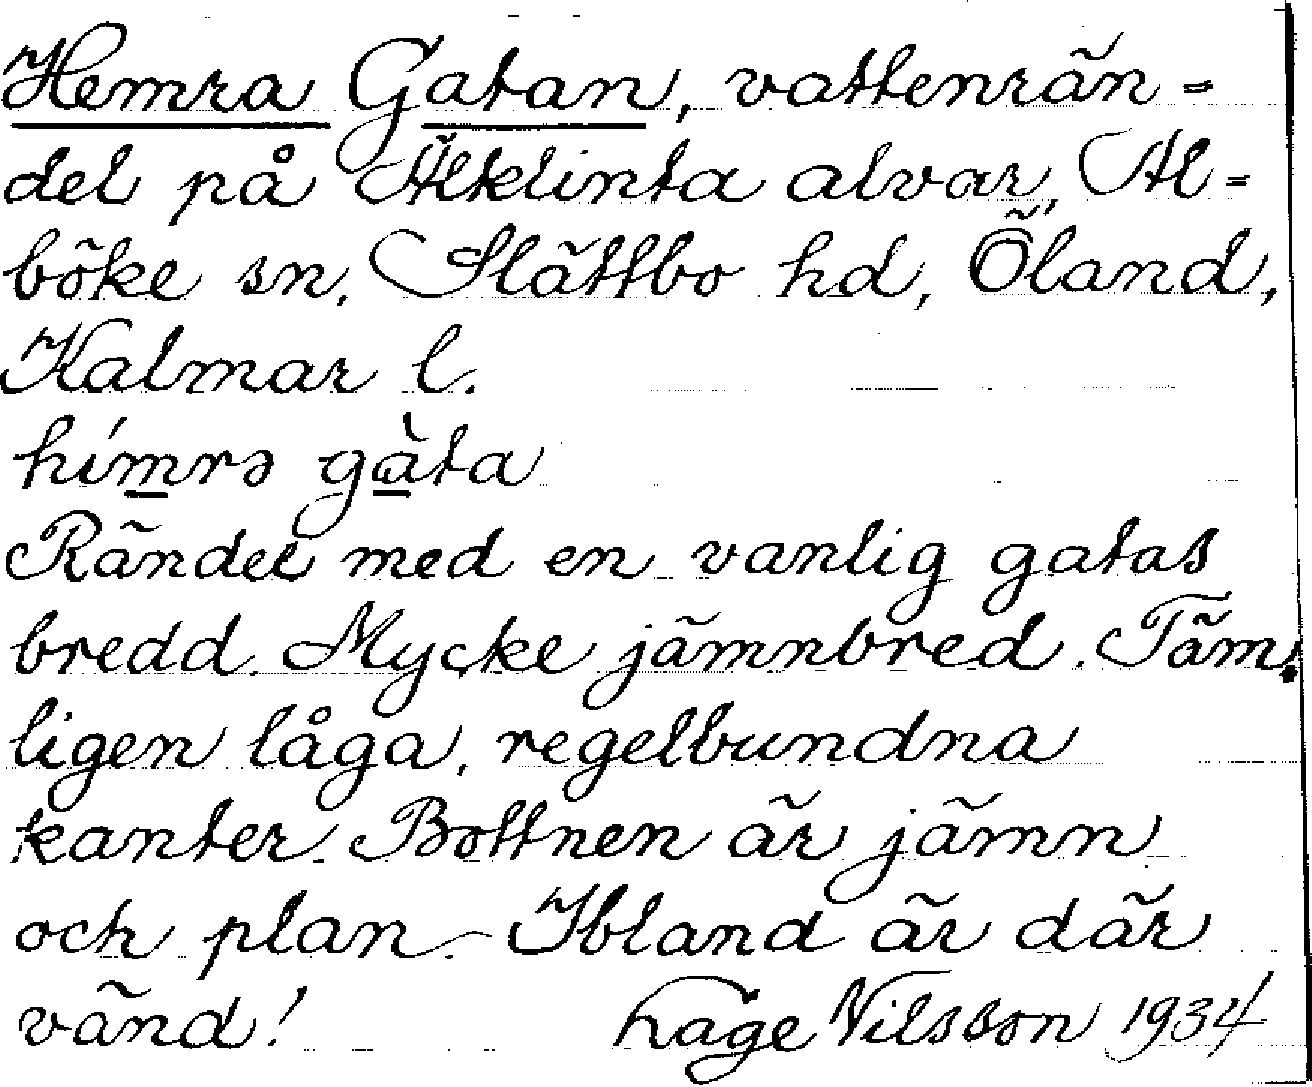 Hemra Gatan, vattenrän=
del på Älklinta alvar, Al=
böke sn, Slättbo hd, Öland,
Kalmar l.
hímrə gàta
Rändel med en vanlig gatas
bredd. Mycke jämnbred. Täm=
ligen låga, regelbundna
kanter. Bottnen är jämn
och plan. Ibland är där
vänd! Lage Nilsson 1934